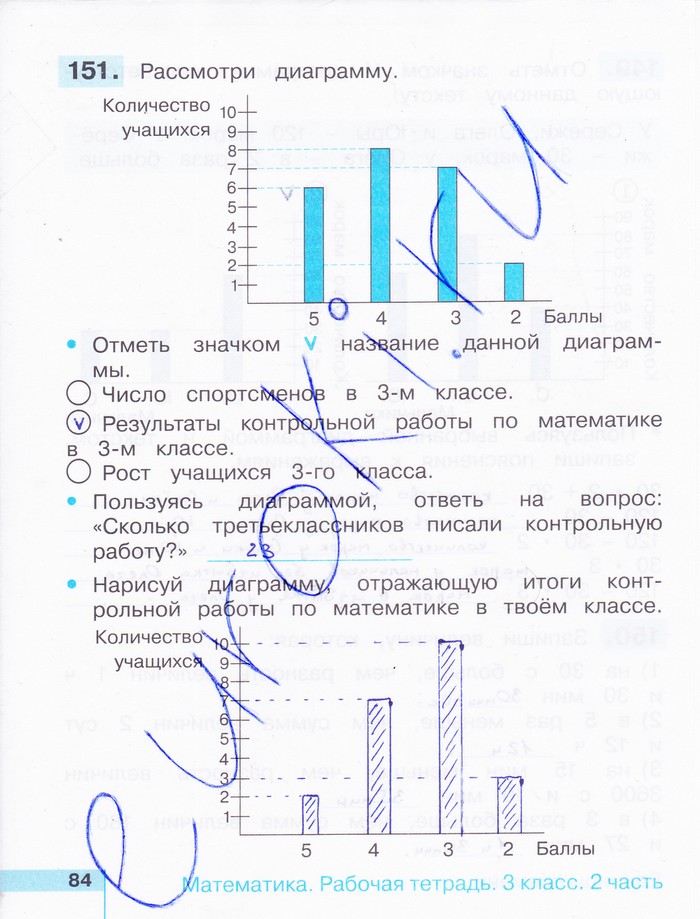 151. Рассмотри диаграмму.
Количество
учащихся
10
9
8
7
6
5
4
3
2
1
5 4 3 2 Баллы
• Отметь значком v название данной диаграм-
мы.
Число спортсменов в 3-м классе.
v Результаты контрольной работы по математике
в 3-м классе.
Рост учащихся 3-го класса.
• Пользуясь диаграммой, ответь на вопрос:
«Сколько третьеклассников писали контрольную
работу?» 23
• Нарисуй диаграмму, отражающую итоги конт-
рольной работы по математике в твоём классе.
Количество
учащихся
10
9
8
7
6
5
4
3
2
1
5 4 3 2 Баллы
84 Математика. Рабочая тетрадь. 3 класс. 2 часть